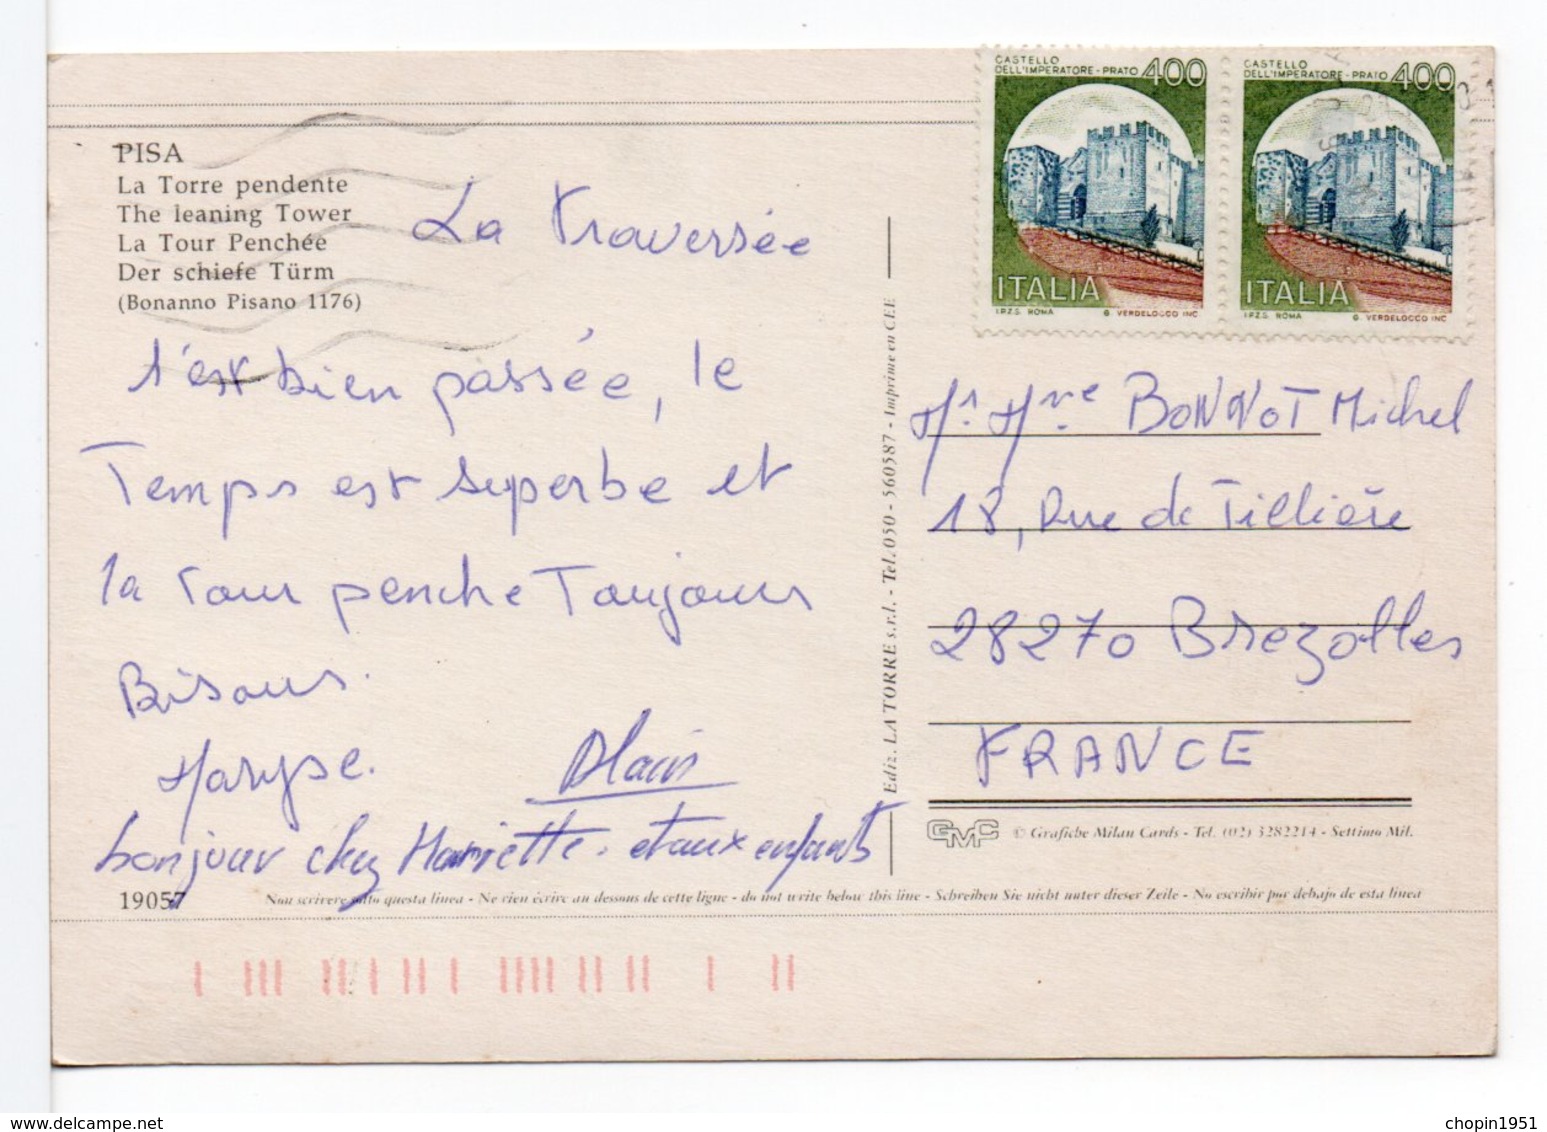 PISA
La Torre pendente
The leaning Tower
La Tour Penchée
Der schiefe Türm
(Bonanno Pisano 1176)
La Traversée
s'est bien passée, le
Temps est superbe et
la Tour penche Toujours
Bisous.
Maryse. Alain
bonjour chez Mariette. et aux enfants
19057
Non scrivere sotto questa linea - Ne rien écrire au dessous de cette ligne - do not write below this line - Schreiben Sie nicht unter dieser Zeile - No escribir por debajo de esta linea
Ediz. LA TORRE s.r.l. - Tel. 050 - 560587 - Imprime en CEE
CASTELLO
DELL'IMPERATORE - PRATO 400
ITALIA
I.P.Z.S. ROMA G. VERDELOCCO INC
CASTELLO
DELL'IMPERATORE - PRATO 400
ITALIA
I.P.Z.S. ROMA G. VERDELOCCO INC
Mr Mme BONNOT Michel
18, Rue de Tillière
28270 Brezolles
FRANCE
GMC © Grafiche Milan Cards - Tel. (02) 3282214 - Settimo Mil.
delcampe.net
chopin1951